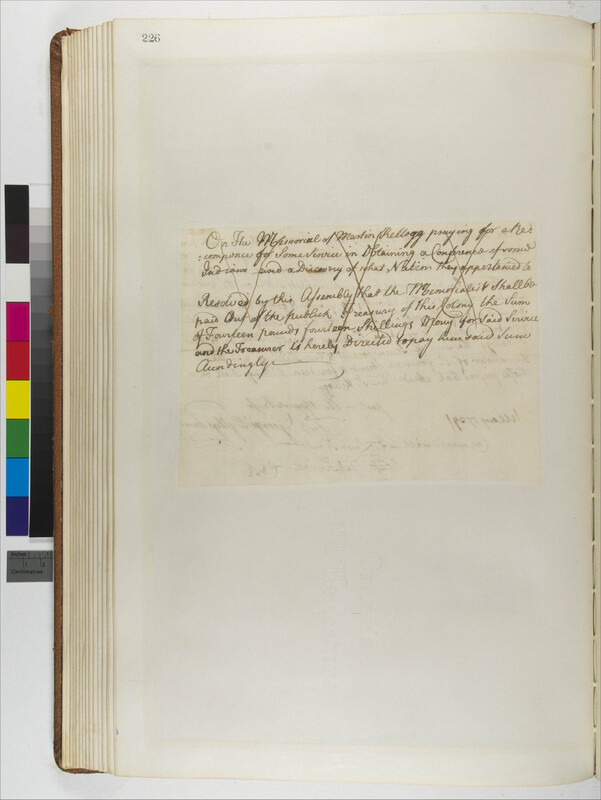 226
On The Memorial of Martin Kellogg praying for a Re=
:compence for Some Service in Obtaining a Conference of some
Indians and a Discovery of what Nation they appertained to
Resolved by this Assembly that the Memorialist Shall be
paid Out of the publick Treasury of this Colony the Sum
of Fourteen pounds fourteen Shillings Money for Said Service
and the Treasurer is hereby Directed to pay him said Sum
Accordingly
Inches 1 2
Centimetres